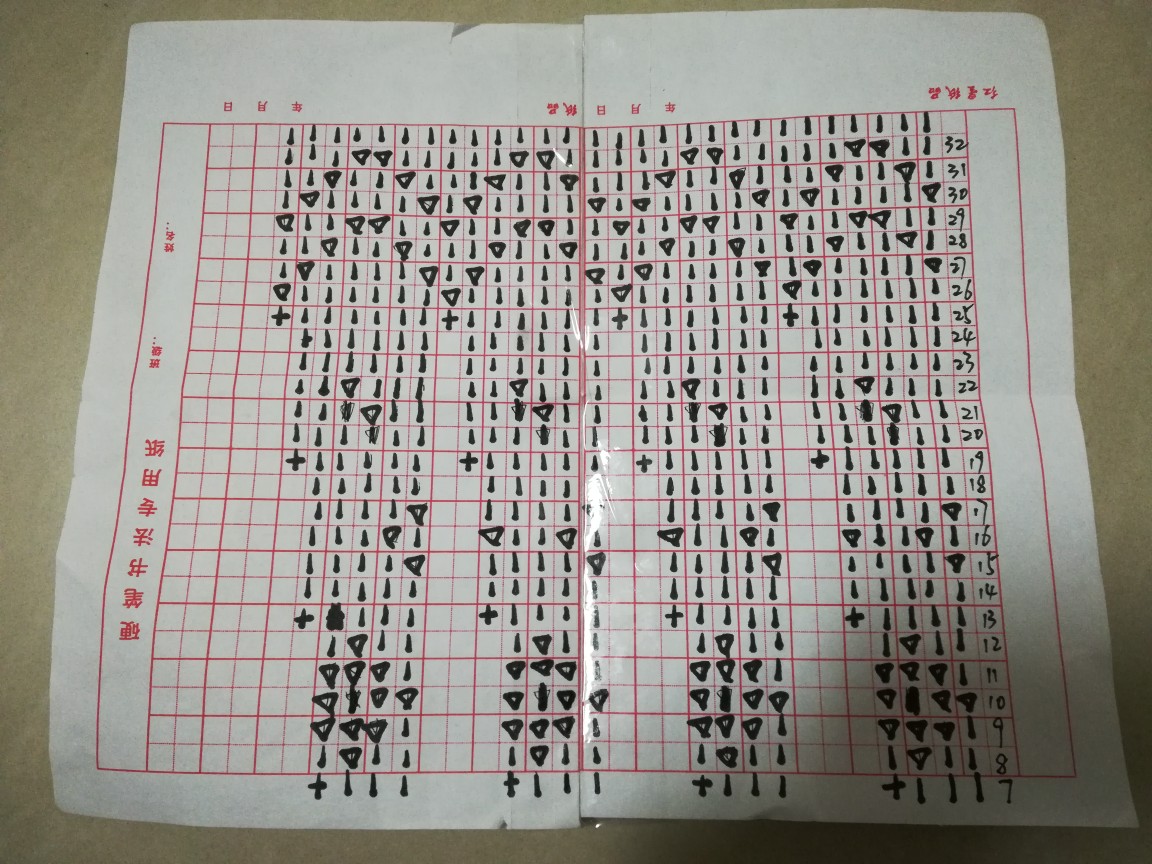 红星纸品
年 月 日
纸品
年 月 日
32
31
30
29
28
27
26
25
24
23
22
21
20
19
18
17
16
15
14
13
12
11
10
9
8
7
姓名:
班级:
硬笔书法专用纸